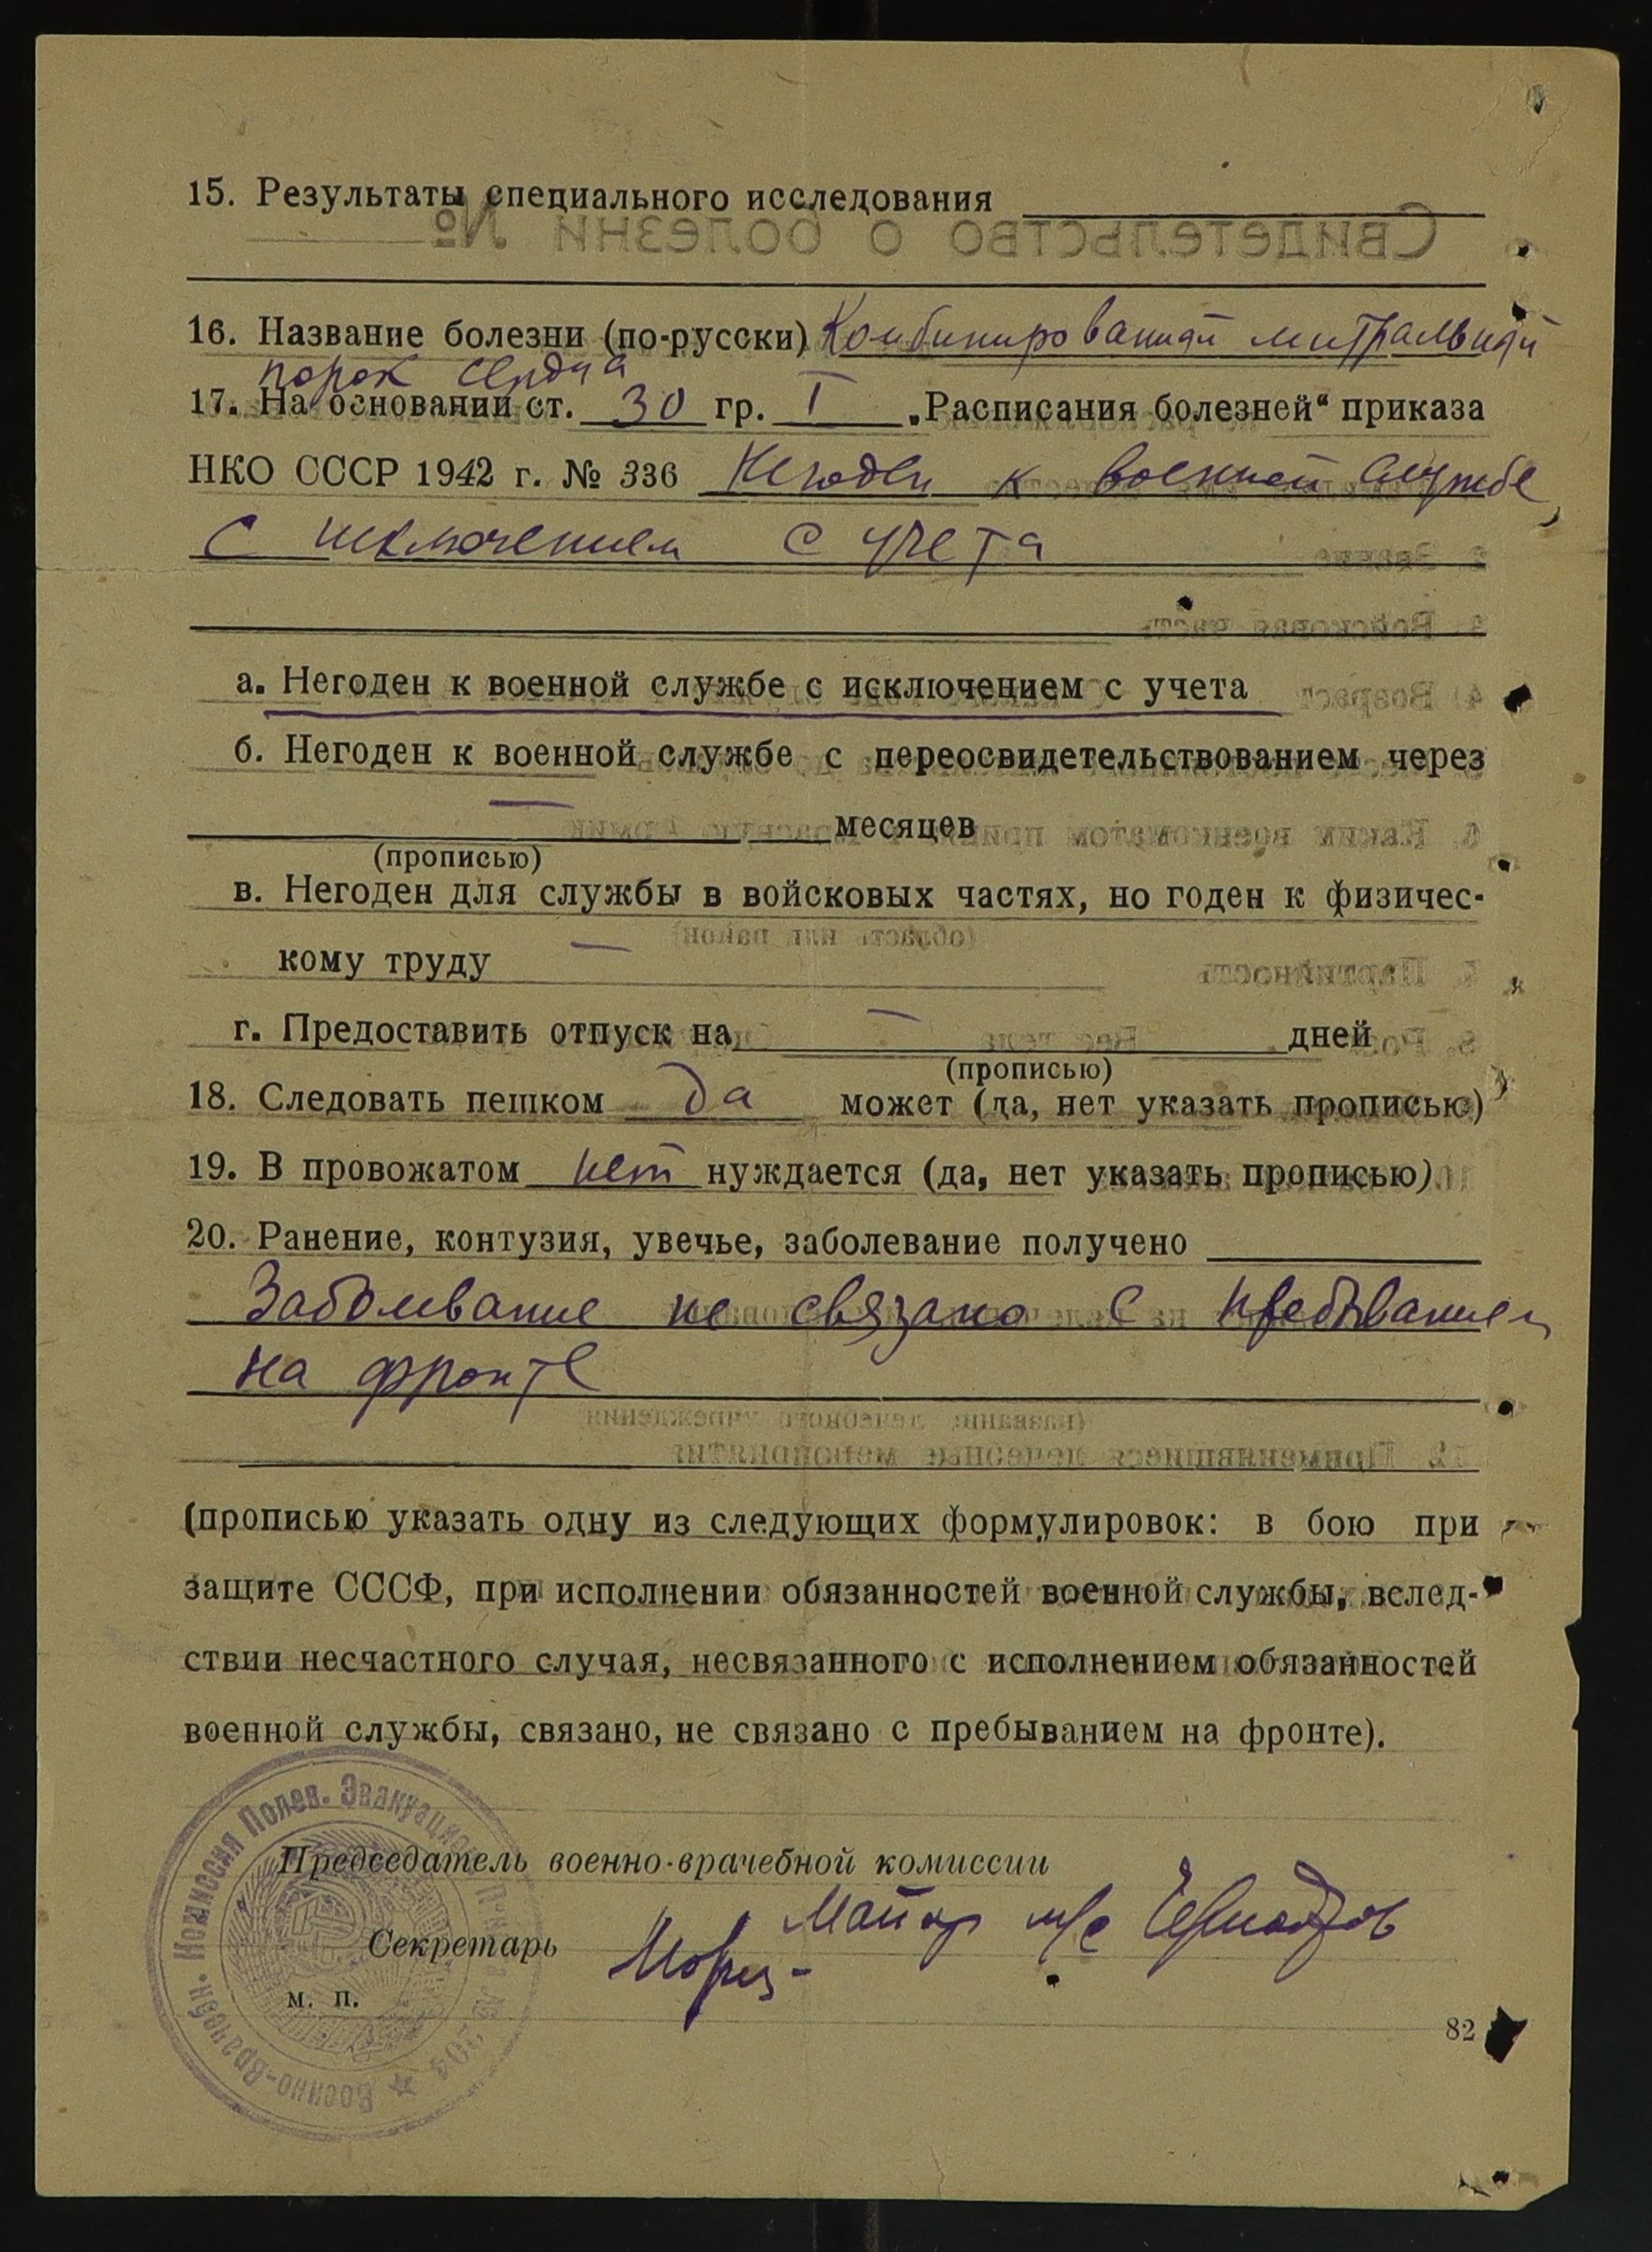 15. Результаты специального исследования
16. Название болезни (по-русски) Комбинированный митральный
порок сердца
17. На основании ст. 30 гр. I „Расписания болезней“ приказа
НКО СССР 1942 г. № 336 Негоден к военной службе,
с исключением с учета
а. Негоден к военной службе с исключением с учета
б. Негоден к военной службе с переосвидетельствованием через
— месяцев
(прописью)
в. Негоден для службы в войсковых частях, но годен к физичес-
кому труду —
г. Предоставить отпуск на — дней
(прописью)
18. Следовать пешком да может (да, нет указать прописью)
19. В провожатом нет нуждается (да, нет указать прописью)
20. Ранение, контузия, увечье, заболевание получено
Заболевание не связано с пребыванием
на фронте
(прописью указать одну из следующих формулировок: в бою при
защите СССФ, при исполнении обязанностей военной службы, вслед-
ствии несчастного случая, несвязанного с исполнением обязанностей
военной службы, связано, не связано с пребыванием на фронте).
Председатель военно-врачебной комиссии
Майор м/с
Секретарь
м. п.
82
Военно-Врачебн. Комиссия Полев. Эвакуацион. № 204